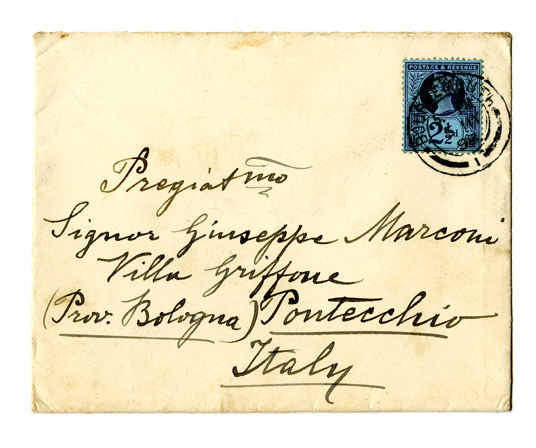 POSTAGE & REVENUE
2½d
Pregiatmo
Signor Giuseppe Marconi
Villa Griffone
(Prov. Bologna) Pontecchio
Italy